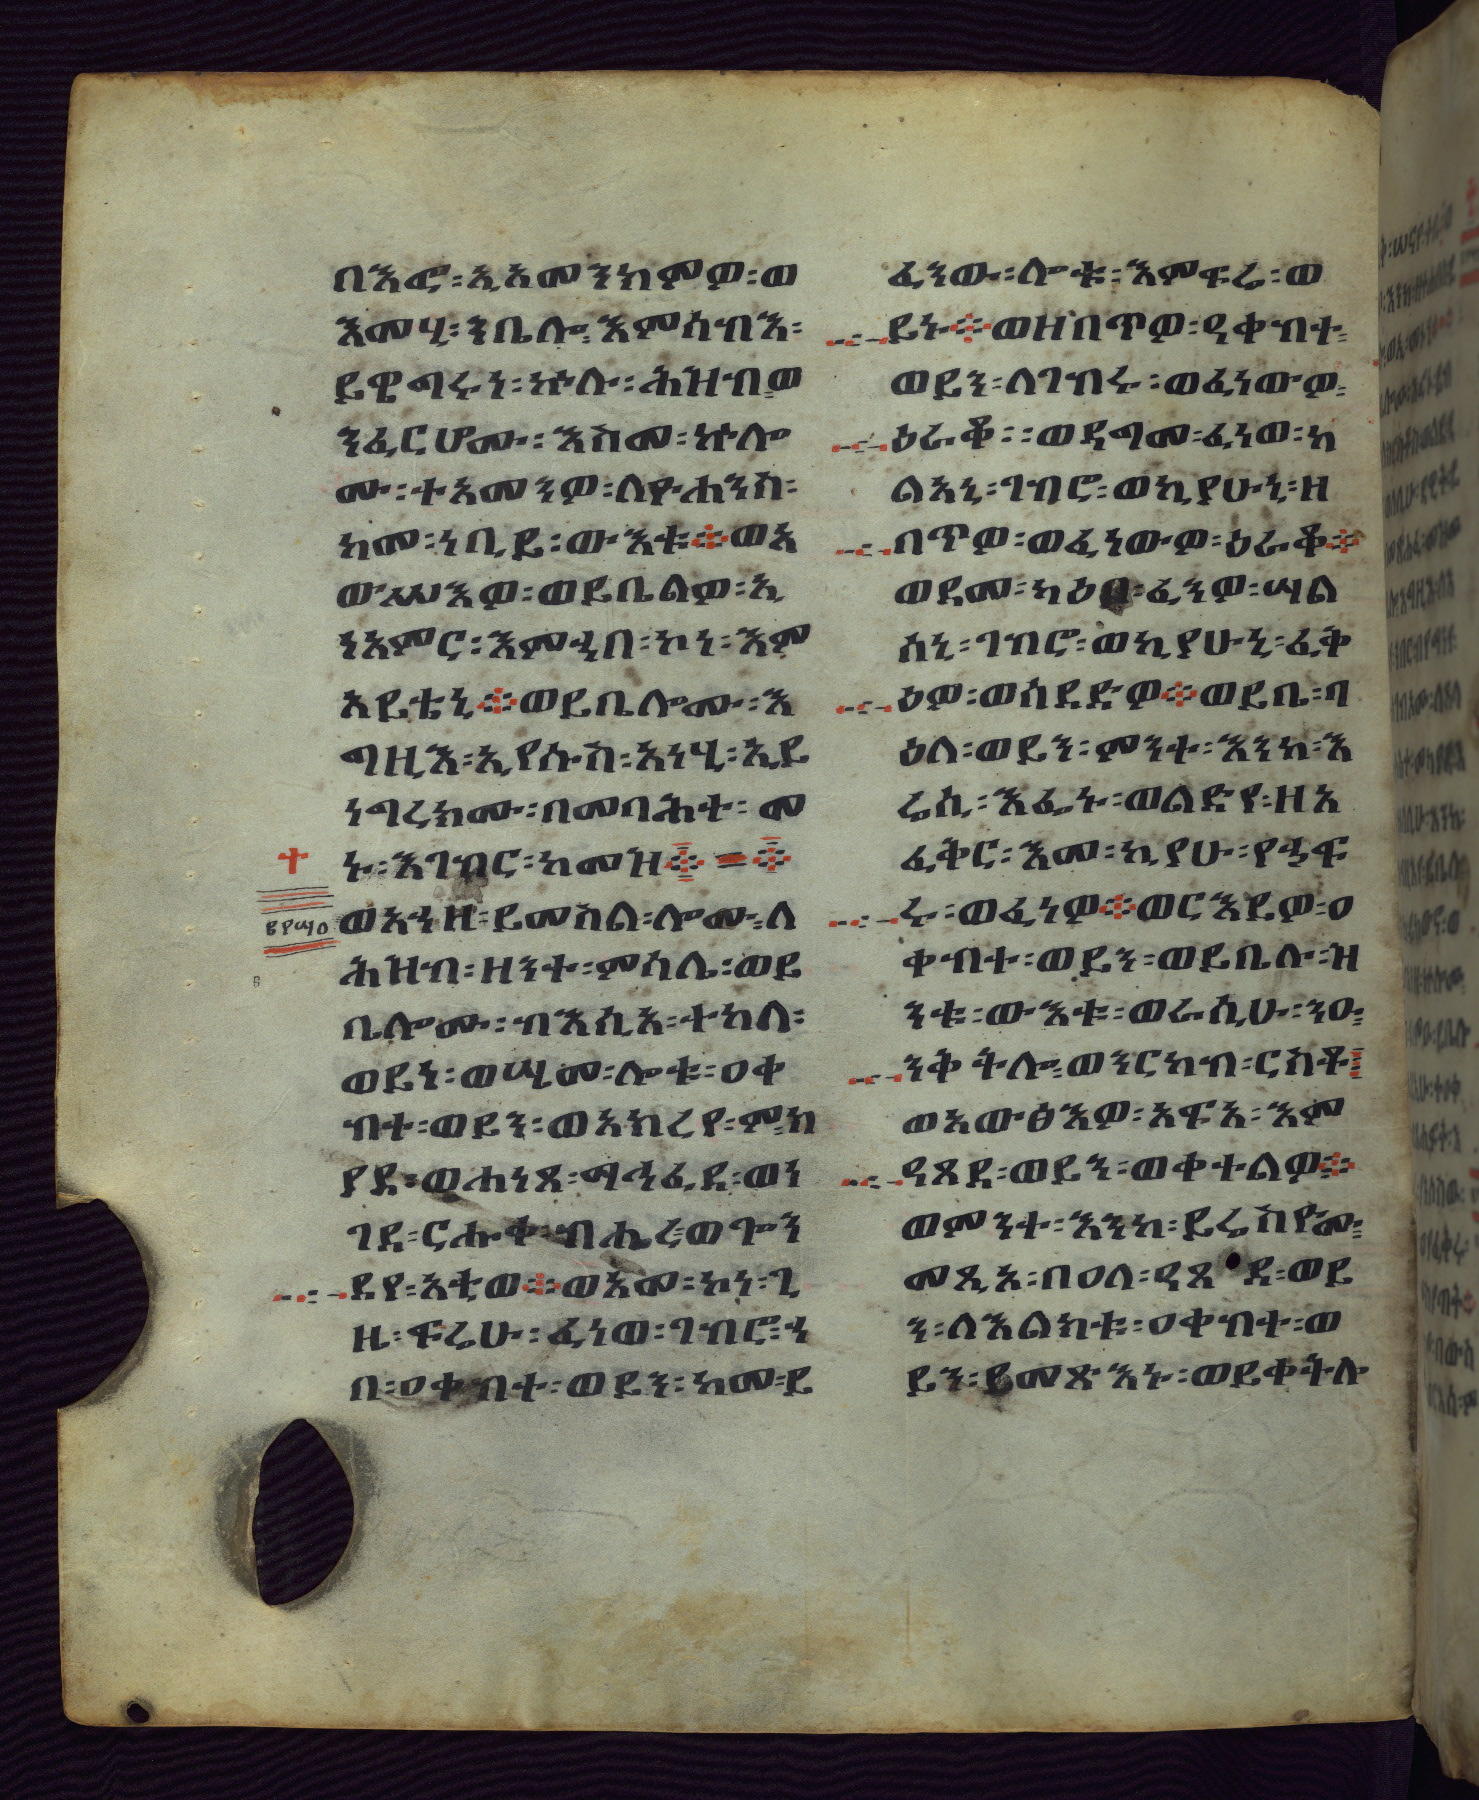 በእፎ፡ኢአመንክምዎ፡ወ
እመሂ፡ንቤሎ፡እምሰብእ፡
ይዌግሩነ፡ኵሉ፡ሕዝብ፡ወ
ንፈርሆሙ፡እስመ፡ኵሎ
ሙ፡ተአመንዎ፡ለዮሐንስ፡
ከመ፡ነቢይ፡ውእቱ፨ወአ
ውሥእዎ፡ወይቤልዎ፡ኢ
ንአምር፡እምኀበ፡ኮነ፡እም
አይቴኒ፨ወይቤሎሙ፡እ
ግዚእ፡ኢየሱስ፡አነሂ፡ኢይ
ነግረክሙ፡በመባሕተ፡መ
ኑ፡እገብር፡ከመዝ፨፡፨
ወአኀዘ፡ይመስል፡ሎሙ፡ለ
ሕዝብ፡ዘንተ፡ምሳሌ፡ወይ
ቤሎሙ፡ብእሲአ፡ተከለ፡
ወይነ፡ወሤመ፡ሎቱ፡ዐቀ
ብተ፡ወይን፡ወአክረየ፡ምክ
ያደ፡ወሐነጸ፡ማኅፈደ፡ወነ
ገደ፡ርሑቀ፡ብሔረ፡ወጐን
ደየ፡አቲወ፨ወአመ፡ኮነ፡ጊ
ዜ፡ፍሬሁ፡ፈነወ፡ገብሮ፡ኀ
በ፡ዐቀብተ፡ወይን፡ከመ፡ይ
ፈንው፡ሎቱ፡እምፍሬ፡ወ
ይኑ፨ወዘበጥዎ፡ዓቀብተ፡
ወይን፡ለገብሩ፡ወፈነውዎ፡
ዕራቆ፡፡ወደግመ፡ፈነወ፡ካ
ልአነ፡ገብሮ፡ወኪያሁኒ፡ዘ
በጥዎ፡ወፈነውዎ፡ዕራቆ፨
ወደመ፡ካዕበ፡ፈንዎ፡ሣል
ሰነ፡ገብሮ፡ወኪያሁኒ፡ፈቅ
ዕዎ፡ወሰደድዎ፨ወይቤ፡ባ
ዕለ፡ወይን፡ምንተ፡እንከ፡እ
ሬሲ፡እፌኑ፡ወልድየ፡ዘአ
ፈቅር፡እመ፡ኪያሁ፡የኃፍ
ሩ፡ወፈነዎ፨ወርእይዎ፡ዐ
ቀብተ፡ወይን፡ወይቤሉ፡ዝ
ንቱ፡ውእቱ፡ወራሲሁ፡ንዑ፡
ንቅትሎ፡ወንርከብ፡ርስቶ፡
ወአውፅእዎ፡አፍአ፡እም
ዓጸደ፡ወይን፡ወቀተልዎ፨
ወምንተ፡እንከ፡ይሬስዮሙ፡
መጺአ፡በዐለ፡ዓጸደ፡ወይ
ን፡ለእልክቱ፡ዐቀብተ፡ወ
ይን፡ይመጽእኑ፡ወይቀትሉ